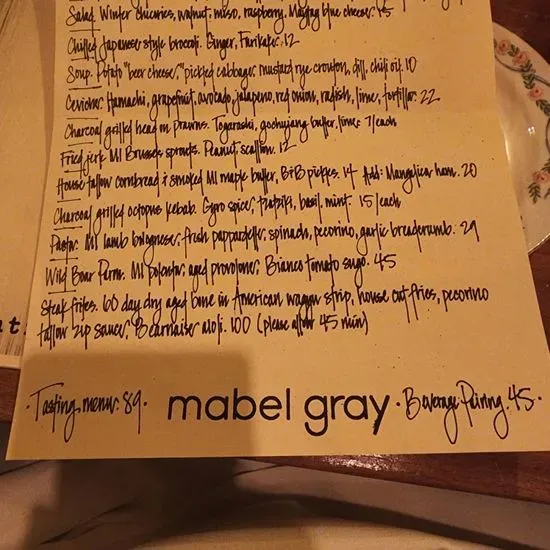 Salad. Winter chicories, walnut, miso, raspberry, Maytag blue cheese. 15
Chilled Japanese style broccoli. Ginger, Furikake. 12
Soup. Potato "beer cheese," pickled cabbage, mustard rye crouton, dill, chili oil. 10
Ceviche. Hamachi, grapefruit, avocado, jalapeno, red onion, radish, lime, tortilla. 22
Charcoal grilled head on prawns. Togarashi, gochujang butter, lime. 7/each
Fried jerk MI Brussels sprouts. Peanut, scallion. 12
House tallow cornbread & smoked MI maple butter, B&B pickles. 14 Add: Mangalica ham. 20
Charcoal grilled octopus kebab. Gyro spice, tzatziki, basil, mint. 15/each
Pasta. MI lamb bolognese, fresh pappardelle, spinach, pecorino, garlic breadcrumb. 29
Wild Boar Parm. MI polenta, aged provolone, Bianco tomato sugo. 45
Steak frites. 60 day dry aged bone in American wagyu strip, house cut fries, pecorino
tallow zip sauce, Bearnaise aioli. 100 (please allow 45 min)
· Tasting menu: 89 · mabel gray · Beverage Pairing. 45 ·